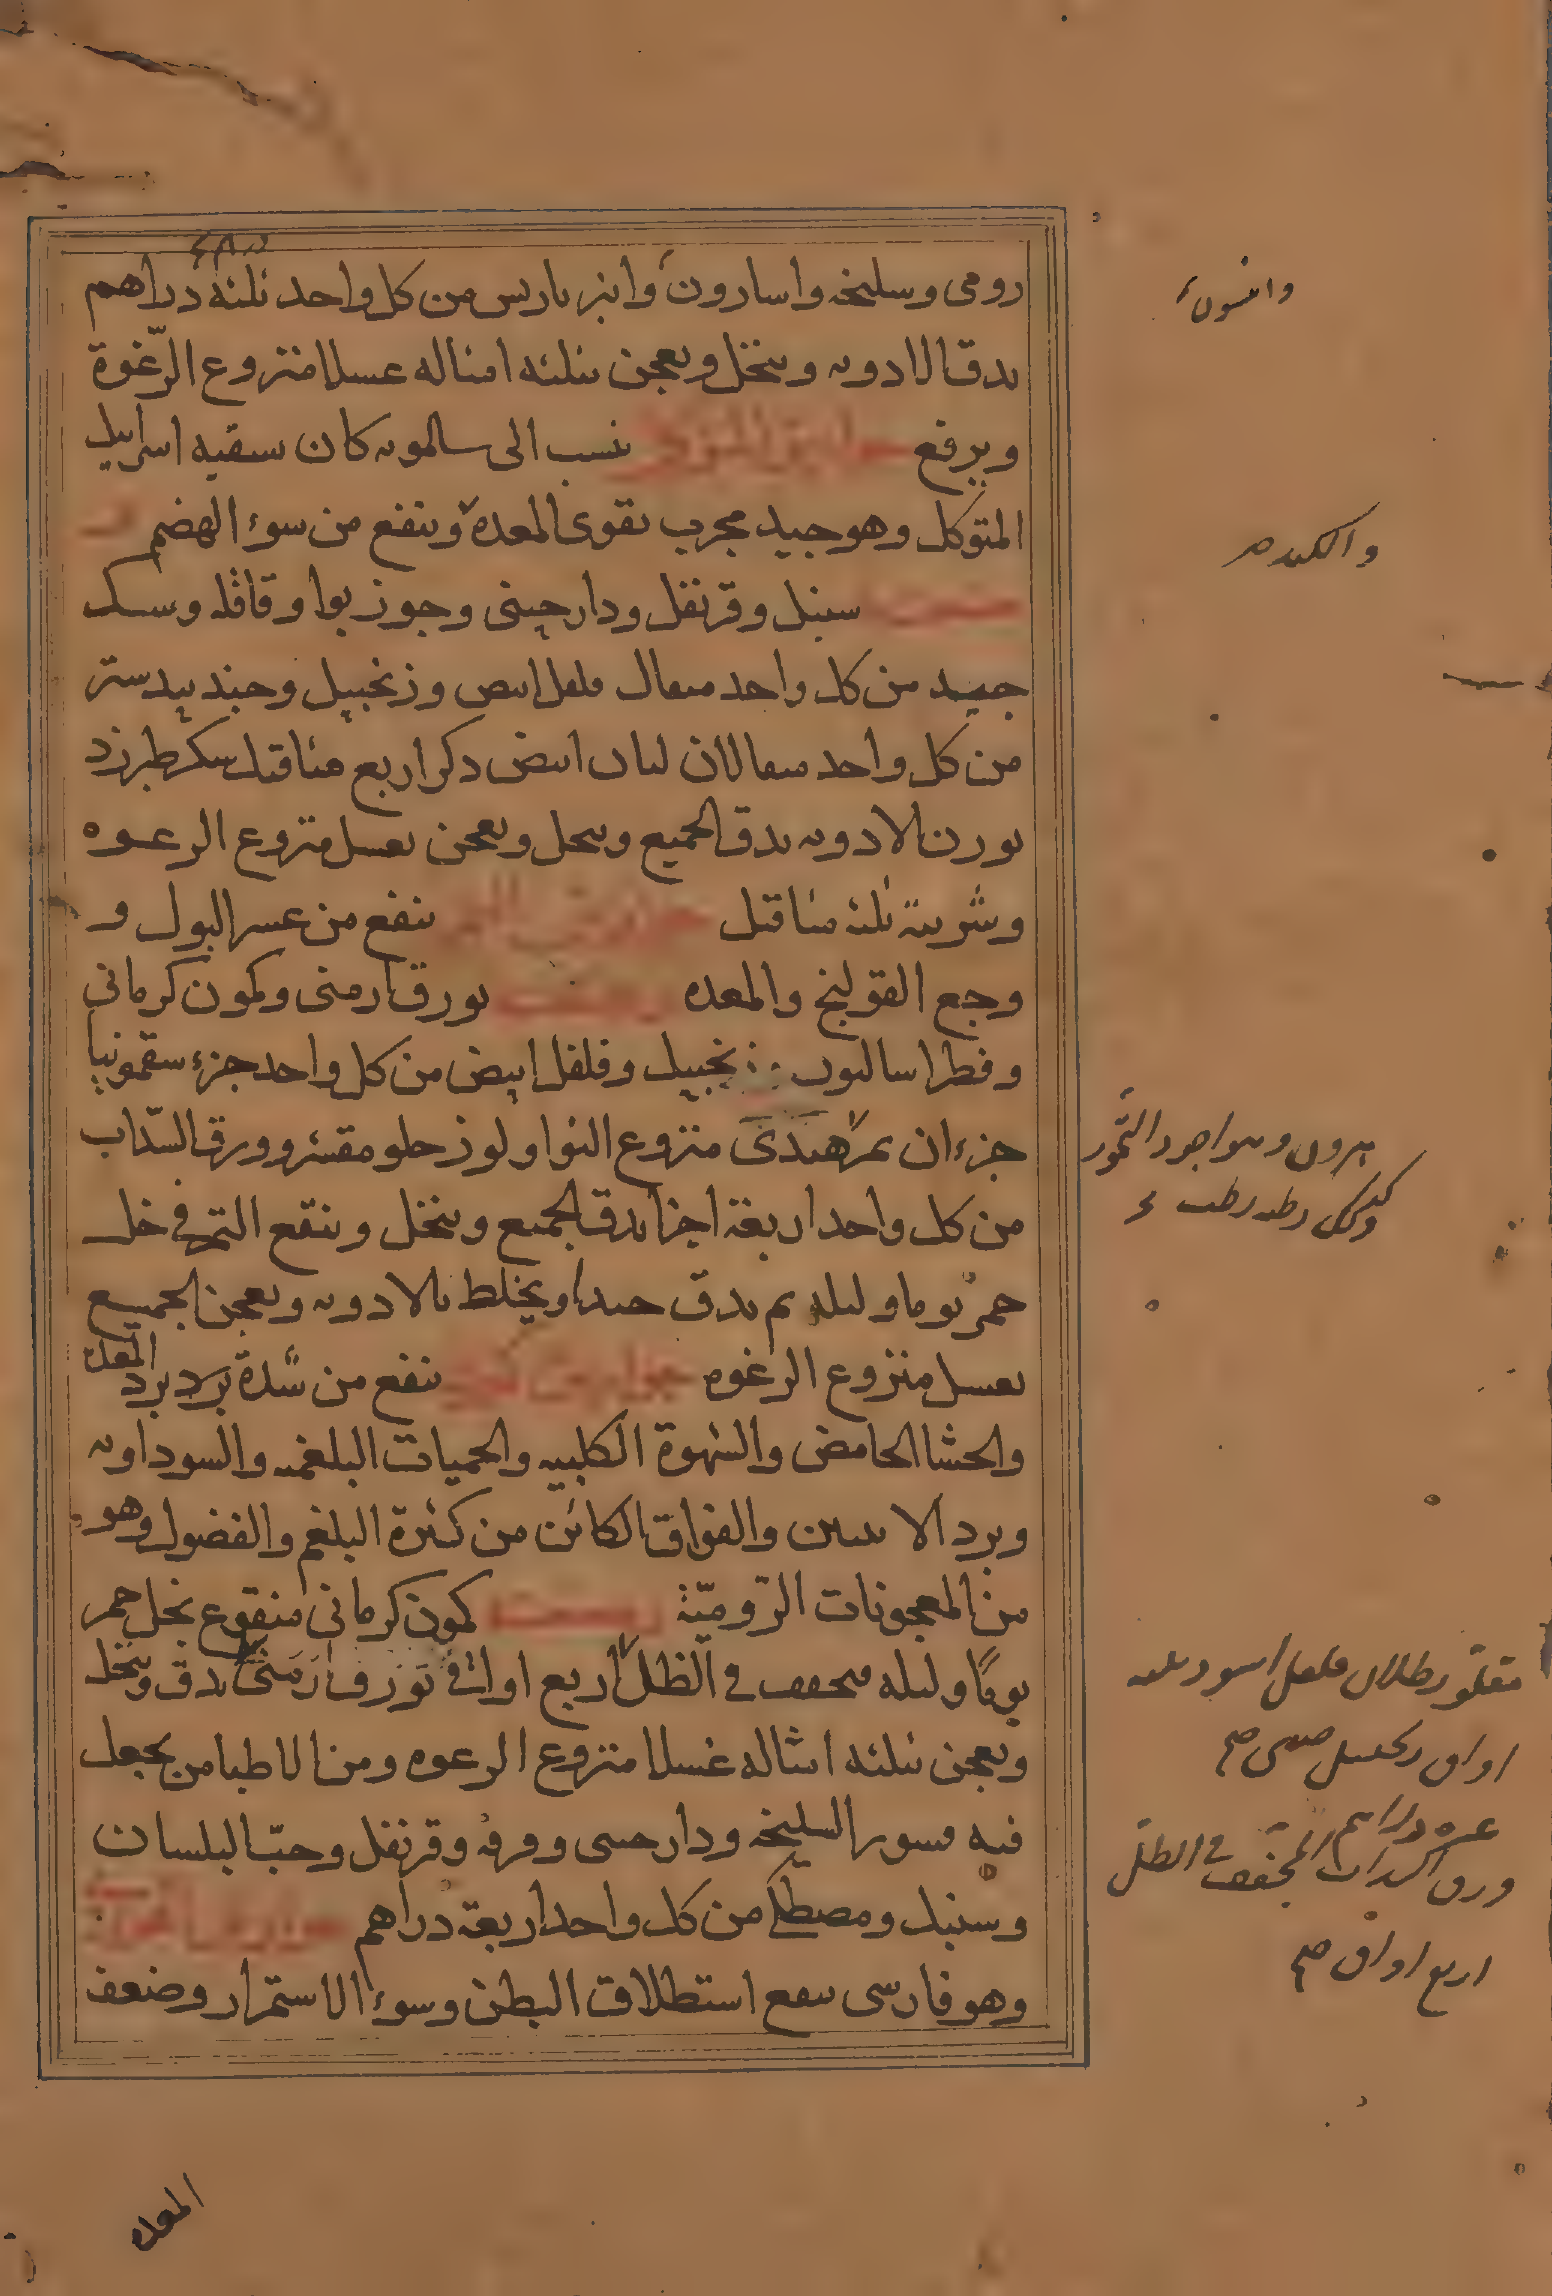 رومى وسليخه واسارون وانبرباريس من كل واحد ثلثه دراهم
يدق الادويه وينخل ويعجن بثلثه امثاله عسلا منزوع الرّغوة
ويرفع ينسب الى سالمويه كان يسقيه اسراييل
المتوكل وهو جيد مجرب يقوى المعده وينفع من سوء الهضم
سنبل وقرنفل ودارچينى وجوز بوا وقاقله وسك
جيد من كل واحد مثقال فلفل ابيض وزنجبيل وجندبيدستر
من كل واحد مثقالان لبان ابيض ذكر اربع مثاقيل سكر طبرزد
بوزن الادويه يدق الجميع وينخل ويعجن بعسل منزوع الرغوه
وشربته ثلثة مثاقيل ينفع من عسر البول و
وجع القولنج والمعده بورق ارمنى وكمون كرمانى
وفطراساليون زنجبيل وفلفل ابيض من كل واحد جزء سقمونيا
جزءان تمر هندى منزوع النوا ولوز حلو مقشر وورق السّذاب
من كل واحد اربعة اجزا يدق الجميع وينخل وينقع التمر فى خل
خمر يوما وليله ثم يدق جيدا ويخلط بالادويه ويعجن الجميع
بعسل منزوع الرغوه جوارش كمونى ينفع من شدة برد المعده
والجشا الحامض والشهوة الكلبيه والحميات البلغميه والسوداويه
وبرد الانثيين والفواق الكائن من كثرة البلغم والفضول وهو
من المعجونات الرّوميّة كمون كرمانى منقوع بخل خمر
يومًا وليله مجفف فى الظل اربع اواق بورق ارمنى يدق وينخل
ويعجن بثلثه امثاله عسلا منزوع الرغوه ومن الاطبا من يجعل
فيه قشور السليخه ودارصينى وقرفه وقرنفل وحبّ البلسان
وسنبل ومصطكى من كل واحد اربعة دراهم
وهو فارسى ينفع استطلاق البطن وسوء الاستمرار وضعف
المعده
وانيسون
اواق زنجبيل صينى صح
ورق السداب المجفف فى الظل
اربع اواق صح